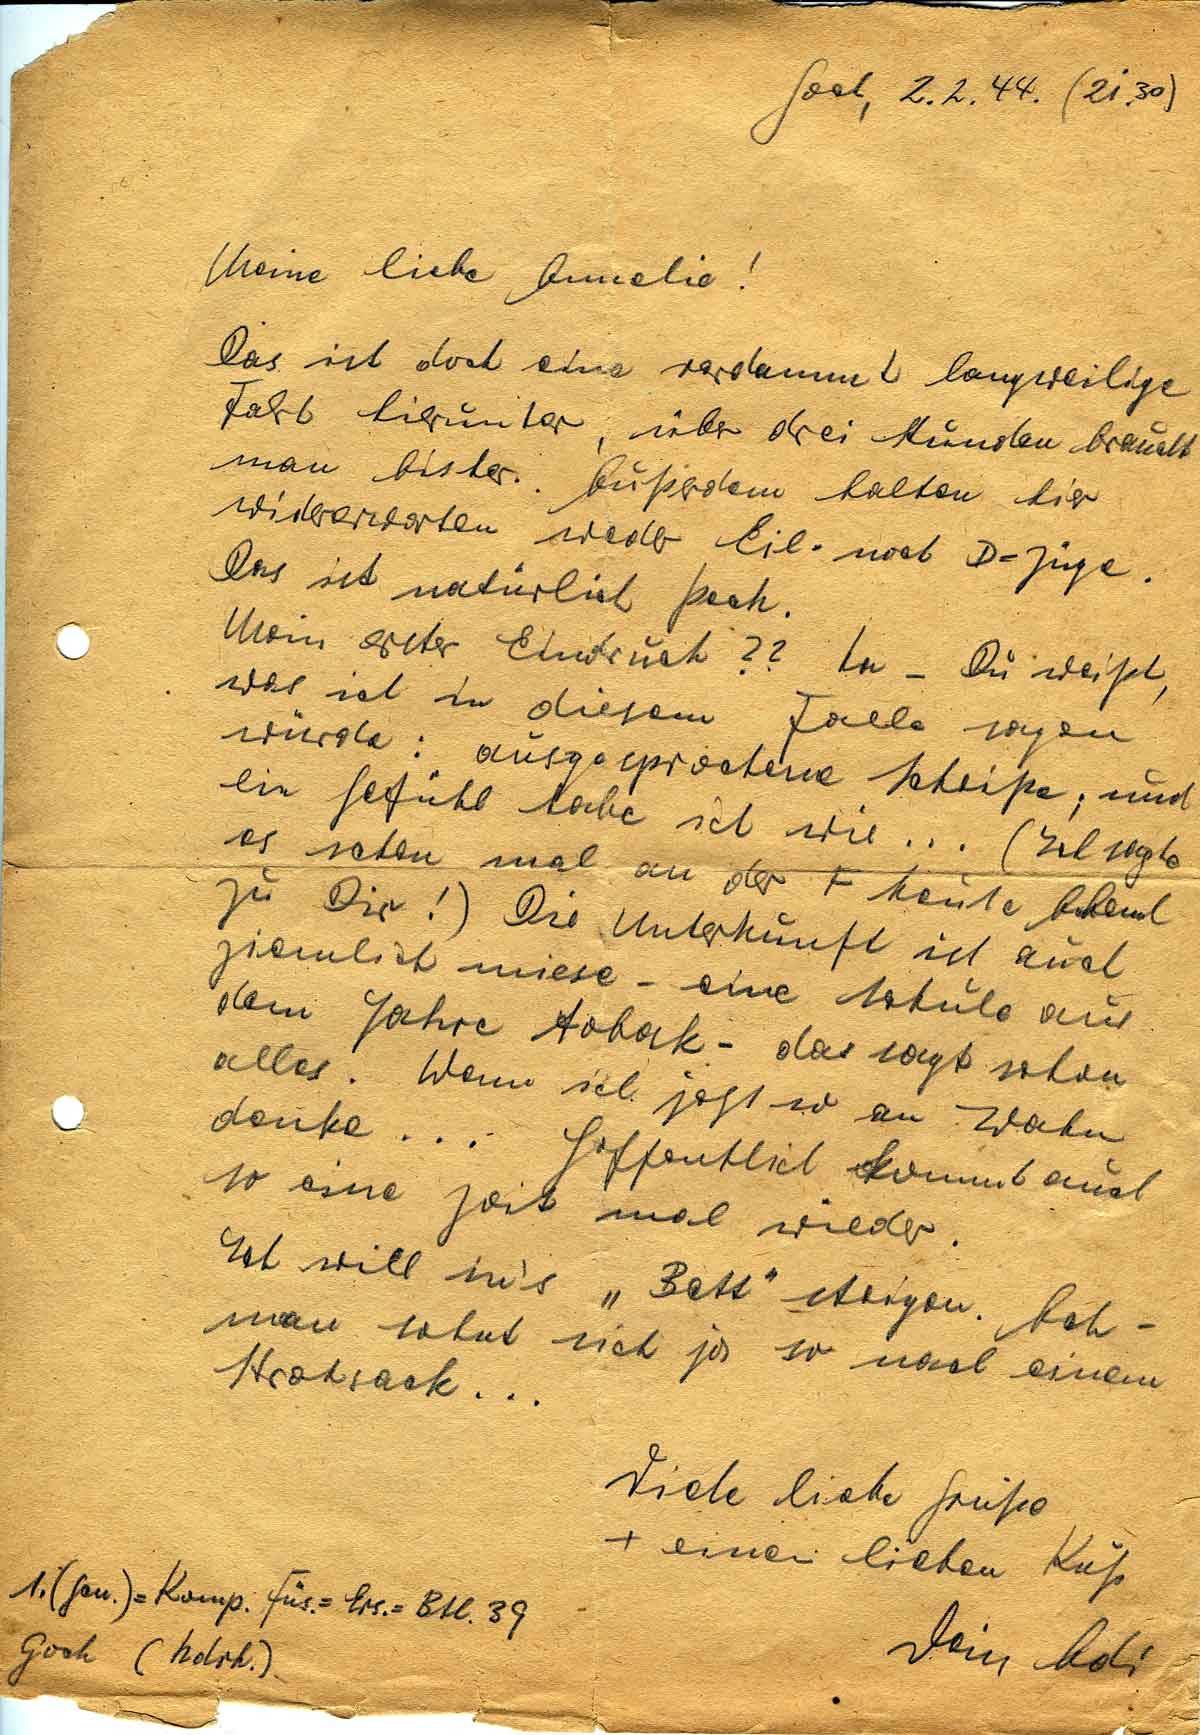 Goch, 2.2.44. (21.30)
Meine liebe Annelie!
Das ist doch eine verdammt langweilige
Fahrt hierunter, über drei Stunden braucht
man bisher. Außerdem halten hier
widererwarten weder Eil- noch D=Züge.
Das ist natürlich Pech.
Mein erster Eindruck?? Na – Du weißt,
was ich in diesem Falle sagen
würde: ausgesprochene Scheiße; und
ein Gefühl habe ich wie... (Ich sagte
es schon mal an der heute Abend
zu Dir!) Die Unterkunft ist auch
ziemlich miese – eine Schule aus
dem Jahre tobak – das sagt schon
alles. Wenn ich jetzt so an Wahn
denke.... Hoffentlich kommt auch
so eine Zeit mal wieder.
Ich will in's „Bett" steigen. Ach –
man sehnt sich ja so nach einem
Strohsack...
Viele liebe Grüße
+ einen lieben Kuß
Dein Adi
1.(Gen.)=Komp. Füs.=Ers.=Btl. 39
Goch (Ndrh.)